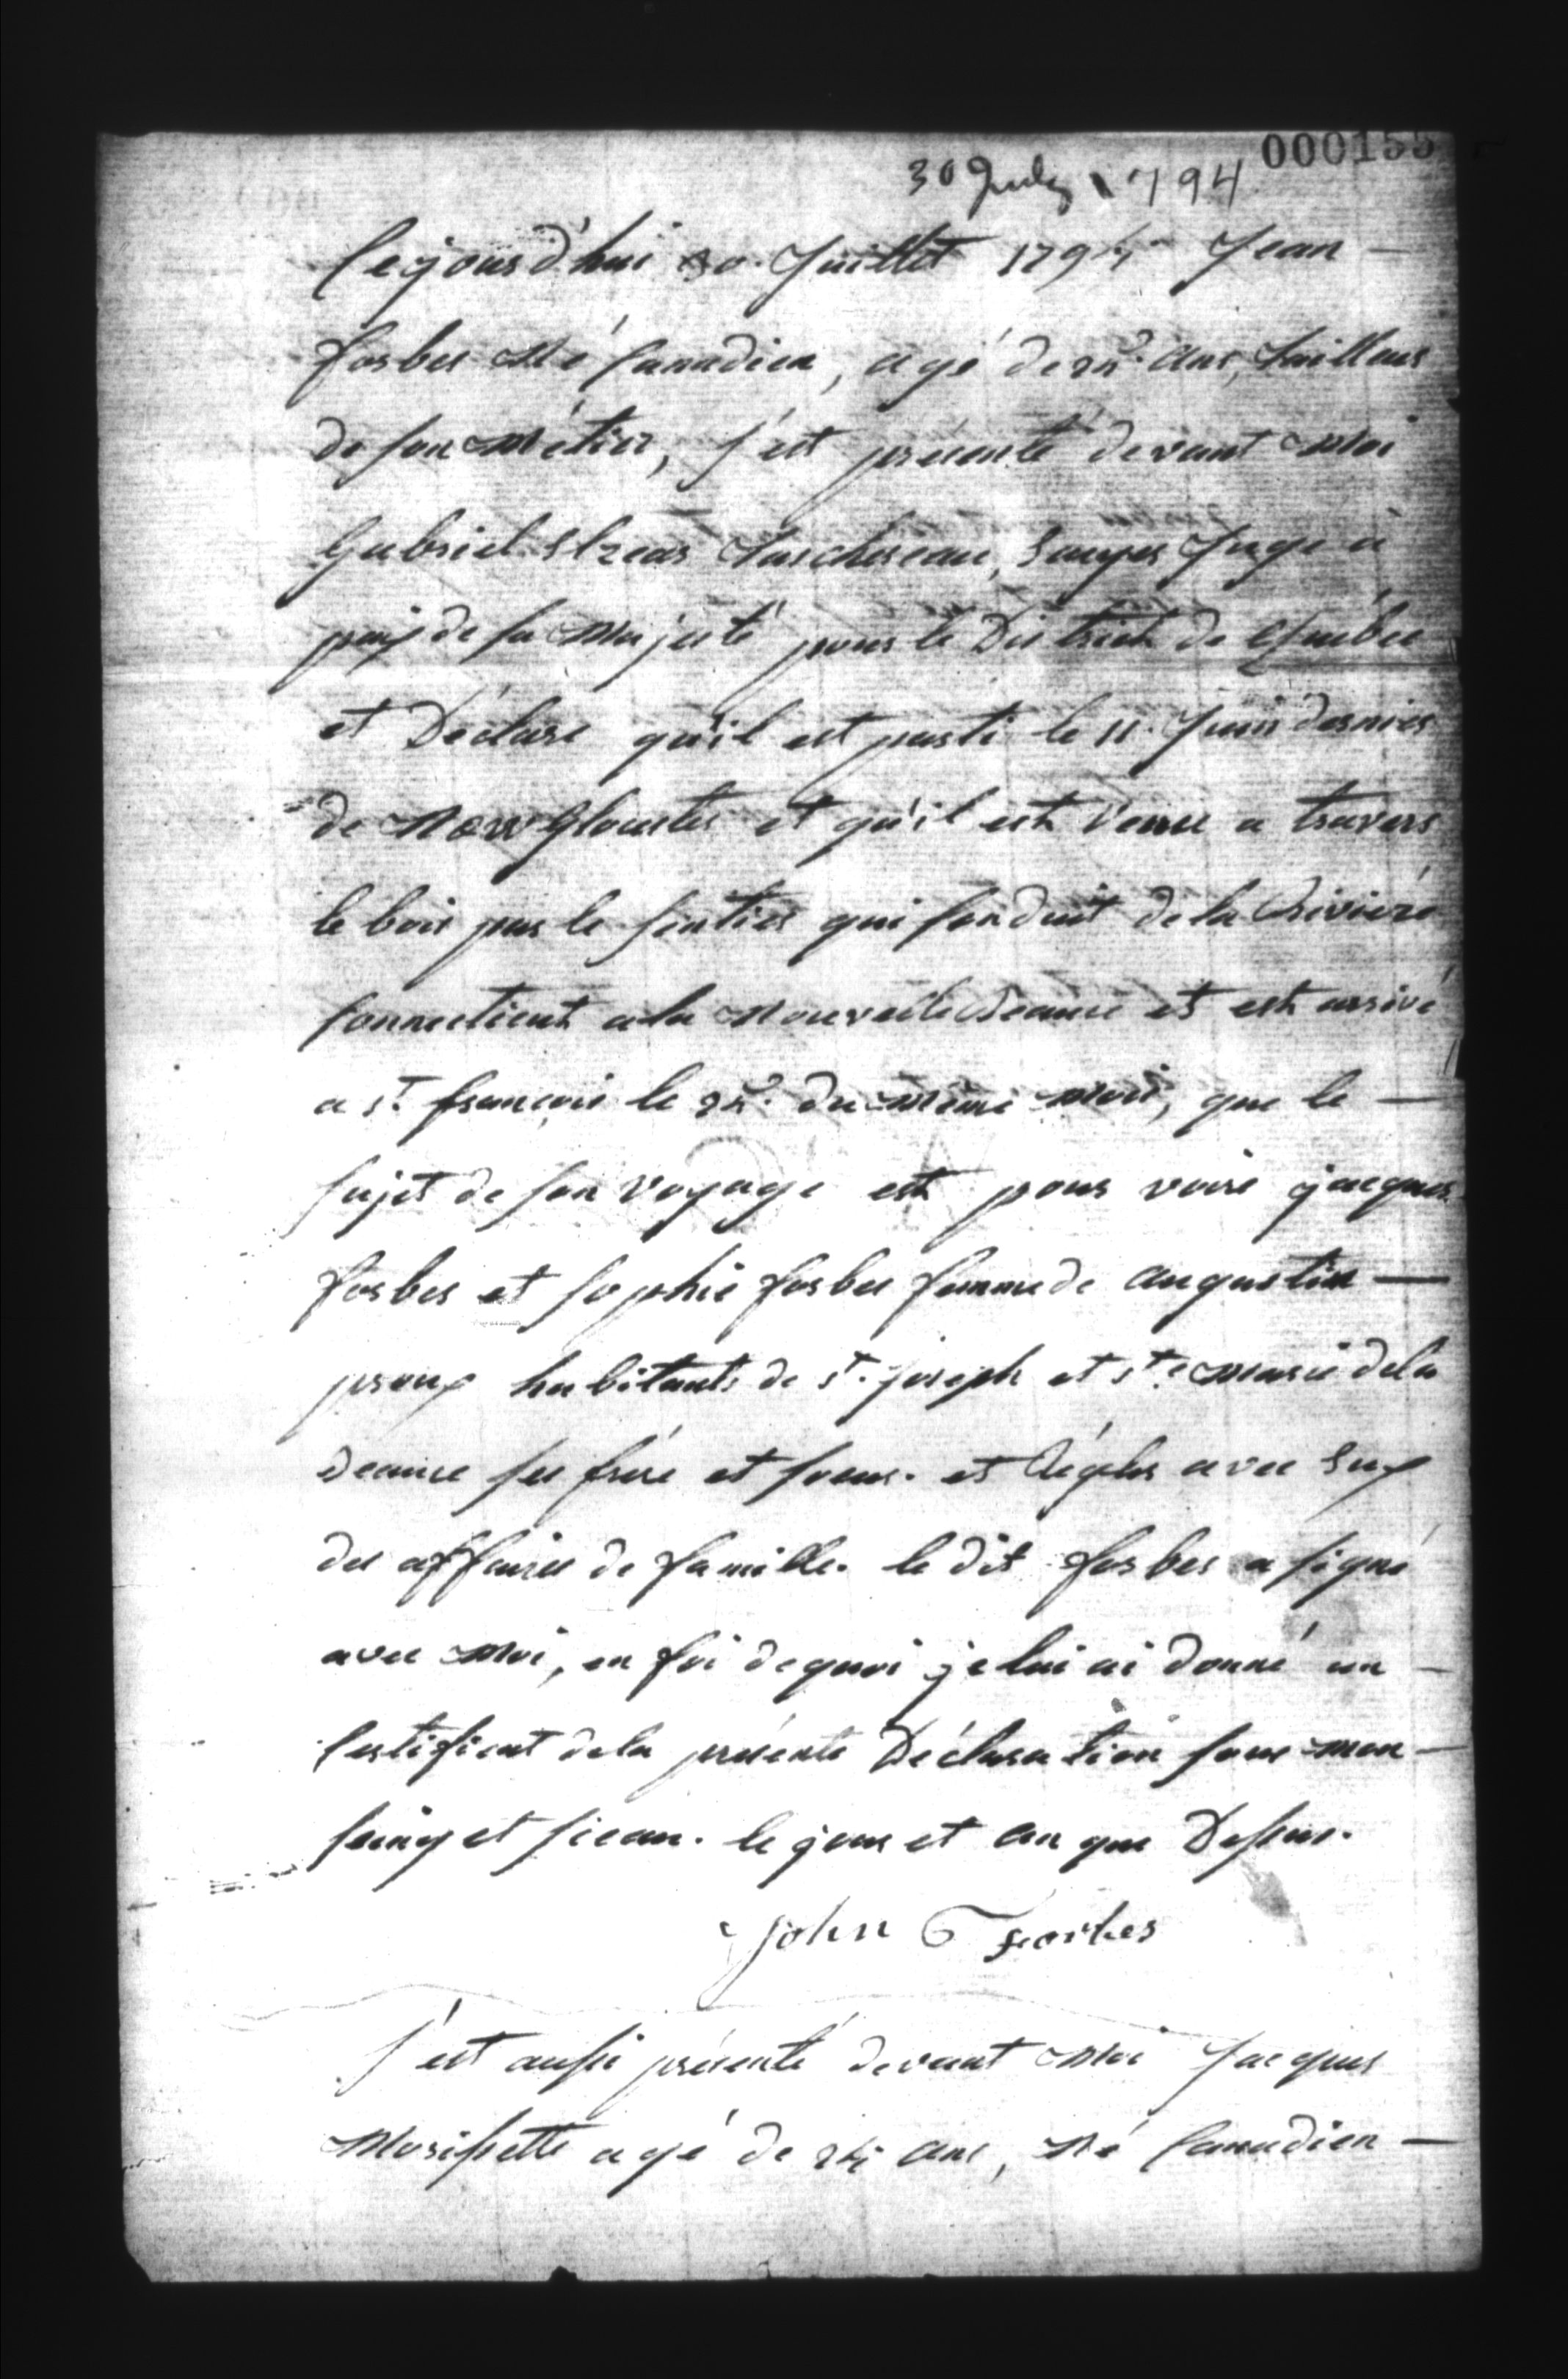 000155
30 July 1794
Cejourd'hui 30. Juillet 1794 Jean —
forbes Né Canadien, agé de 25. ans, tailleur
de son Métier, s'est présenté devant Moi
Gabriel Elzear Taschereau, Ecuyer Juge à
paix de sa Majesté pour le District de Québec
et Déclare qu'il est parti le 11. Juin dernier
de New Glocester et qu'il est venu a travers
le bois par le sentier qui Conduit de la Rivière
Connecticut a la Nouvelle Beauce et est arrivé
a St. françois le 25. du même mois, que le —
sujet de son voyage est pour voire jacques
forbes et sophie forbes femme de augustin —
proux habitants de st. joseph et ste. Marie dela
Beauce ses frère et soeur. et Régler avec Eux
des affaires de famille. le dit forbes a signé
avec Moi, en foi de quoi je lui ai donné un —
Certificat dela présente Déclaration sous mon —
seing et sceau. le jour et an que Dessus.
John Forbes
S'est aussi présenté devant Moi Jacques
Morissette agé de 24 ans, Né Canadien —